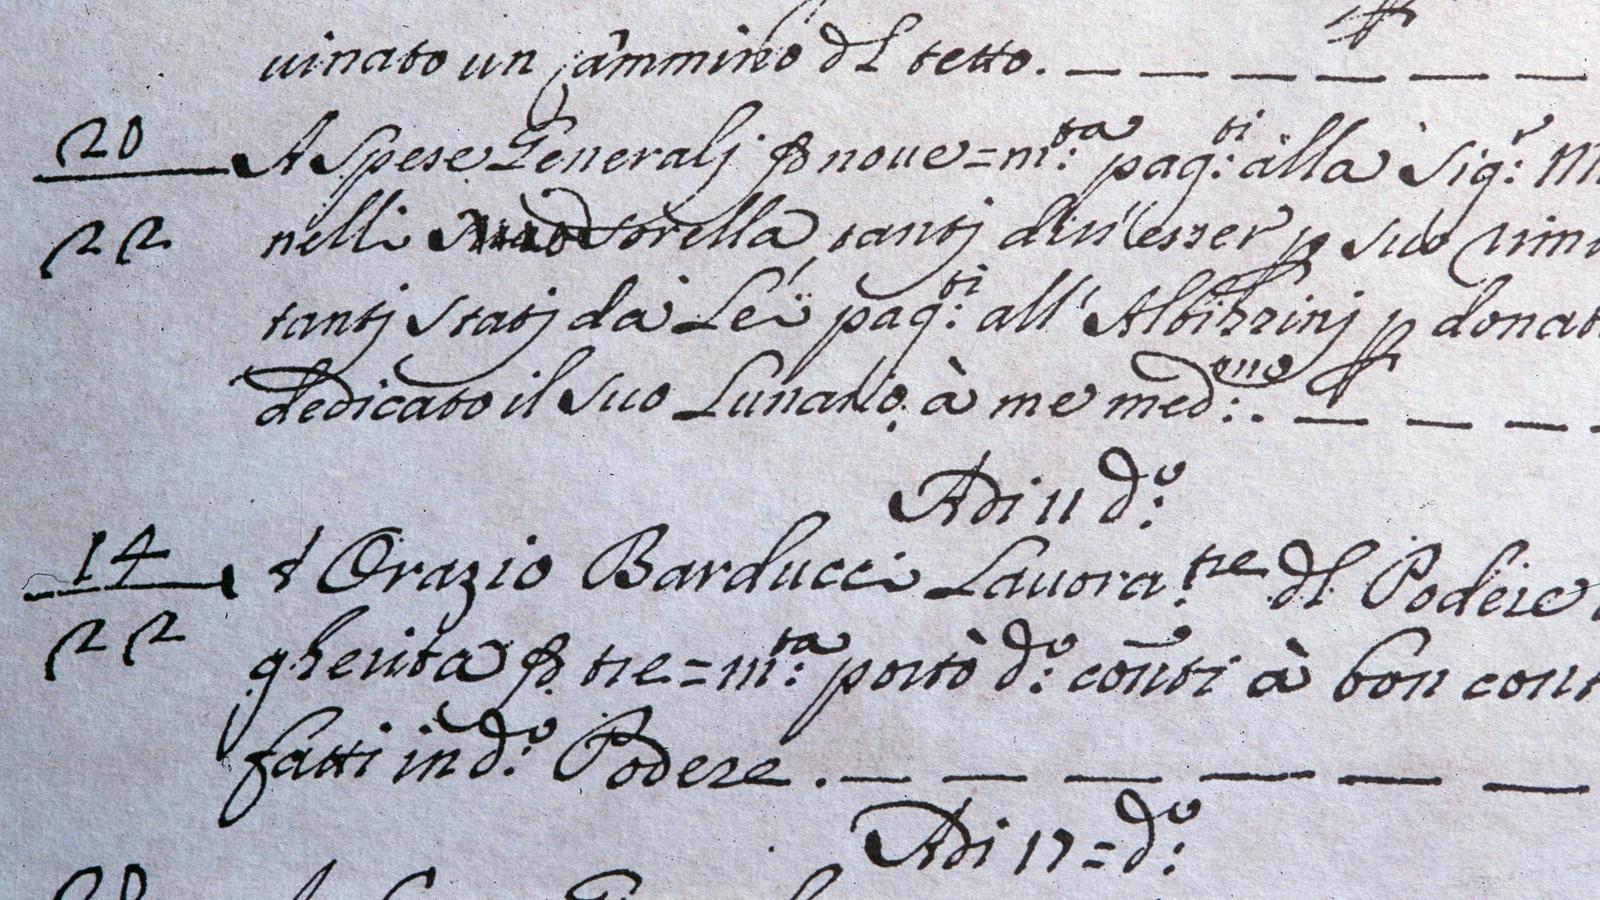 uinato un cammino dl tetto. — — — — — —
20 A Spese Generalj noue = m:ta pag:ti alla Sig:r M
22 nelli Sorella, tantj
tantj statj da Lei pag:ti all' Albibzinj p donat
dedicato il suo Lunario, à me med:mo. — — —
Adi 11 d:o
14 Orazio Barducci Lauora:tre dl Podere
22 gherita tre = m:ta portò d:o conti à bon cont
fatti in d:o Podere. — — — — — —
Adi 17 = d:o
20